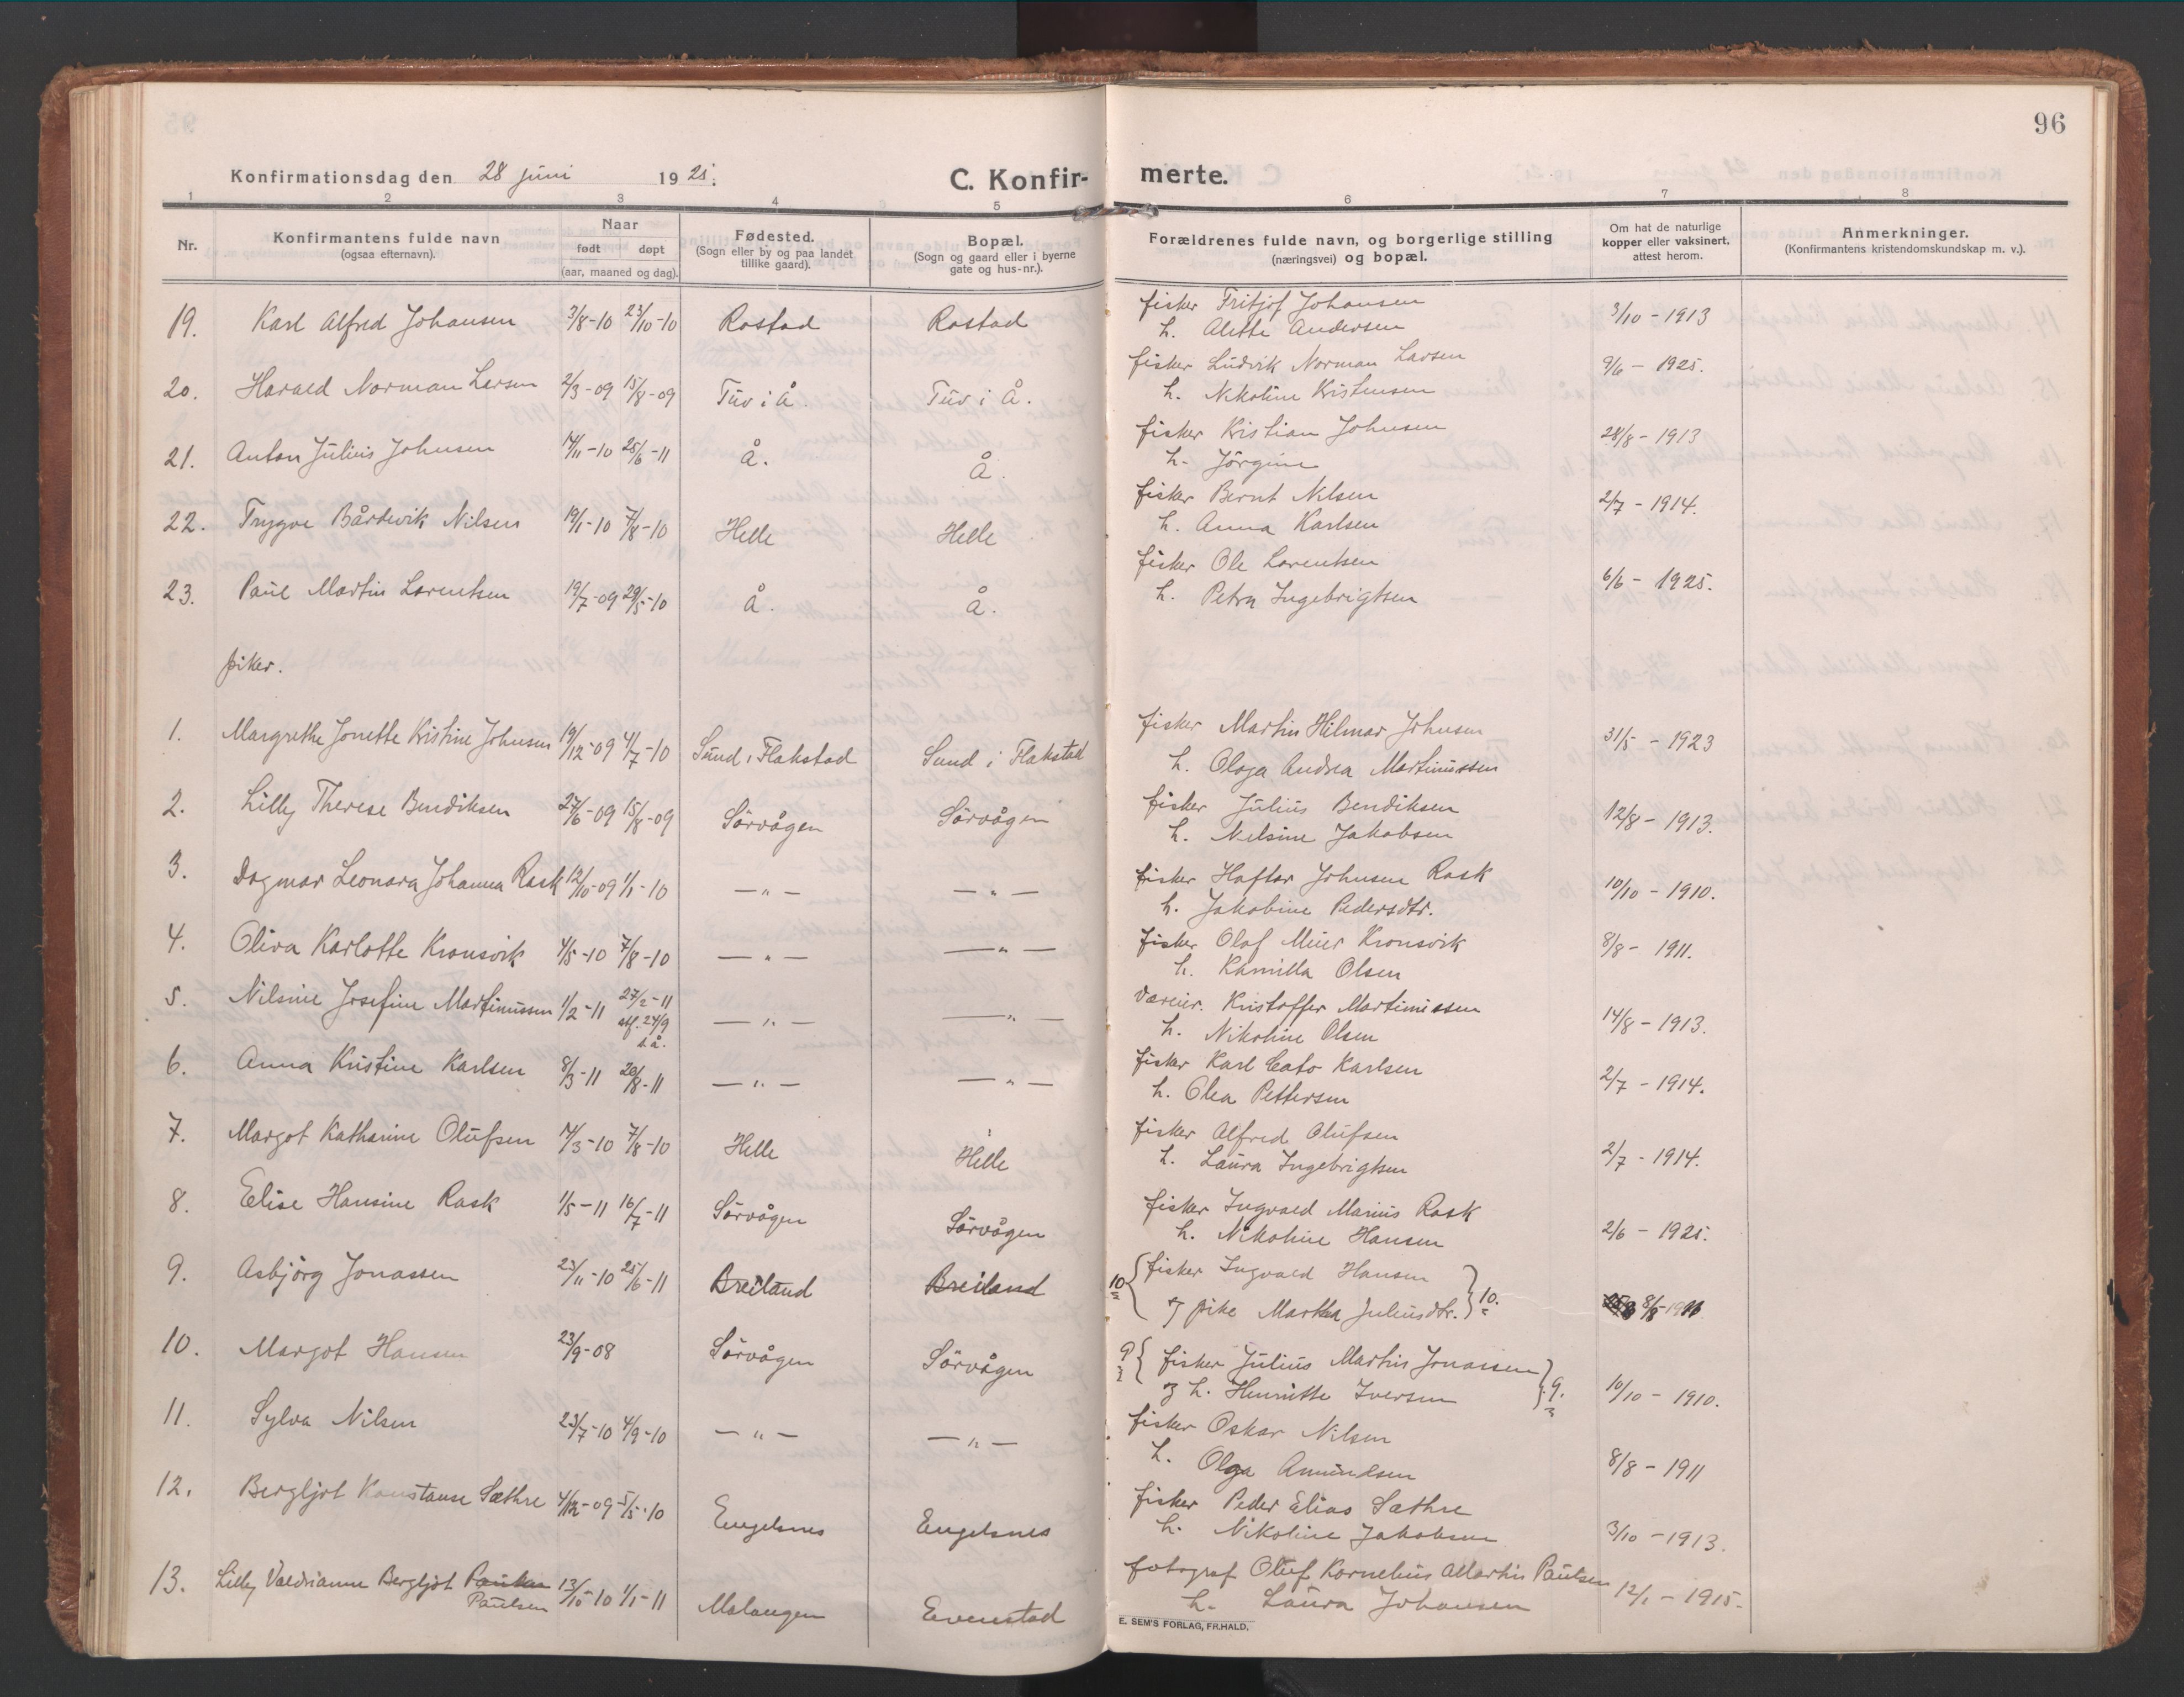 96
Konfirmationsdag den 28 juni 1925.
C. Konfirmerte.
1 2 3 4 5 6 7 8
Nr.
Konfirmantens fulde navn (ogsaa efternavn).
Naar født døpt (aar, maaned og dag).
Fødested. (Sogn eller by og paa landet tillike gaard).
Bopæl. (Sogn og gaard eller i byerne gate og hus-nr.).
Forældrenes fulde navn, og borgerlige stilling (næringsvei) og bopæl.
Om hat de naturlige kopper eller vaksinert, attest herom.
Anmerkninger. (Konfirmantens kristendomskundskap m. v.).
19. Karl Alfred Johansen 3/8-10 23/10-10 Rostad Rostad fisker Fritjof Johansen 3/10-1913
h. Alette Andersen
20. Harald Norman Larsen 2/3-09 15/8-09 Tuv i Å. Tuv i Å. fisker Ludvik Norman Larsen 9/6-1925.
h. Nikoline Kristensen
21. Anton Julius Johnsen 14/11-10 25/6-11 Å. Å. fisker Kristian Johnsen 28/8-1913
h. Jörgine
22. Trygve Bårdevik Nilsen 19/1-10 7/8-10 Helle Helle fisker Bernt Nilsen 2/7-1914.
h. Anna Karlsen
23. Paul Martin Lorentsen 19/7-09 29/5-10 Å. Å. fisker Ole Lorentsen 6/6-1925.
h. Petra Ingebrigtsen
piker.
1. Margrethe Jonette Kristine Johnsen 19/12-09 4/7-10 Sund i Flakstad Sund i Flakstad fisker Martin Hilmar Johnsen 31/5-1923
h. Olaga Andrea Martinussen
2. Lilly Therese Bendiksen 27/6-09 15/8-09 Sörvågen Sörvågen fisker Julius Bendiksen 12/8-1913.
h. Nilsine Jakobsen
3. Dagmar Leonara Johanna Rask 12/10-09 1/1-10 -"- -"- fisker Haftor Johnsen Rask 10/10-1910.
h. Jakobine Pedersdtr.
4. Oliva Karlotte Kronsvik 4/5-10 7/8-10 -"- -"- fisker Olaf Meier Kronsvik 8/8-1911.
h. Kamilla Olsen
5. Nilsine Josefine Martinussen 1/2-11 27/2-11 stf. 24/9 s.å. -"- -"- Kristoffer Martinussen 14/8-1913.
h. Nikoline Olsen
6. Anna Kristine Karlsen 8/3-11 20/8-11 -"- -"- fisker Karl Cato Karlsen 2/7-1914.
h. Olea Pettersen
7. Margot Katharine Olufsen 14/3-10 7/8-10 Helle Helle fisker Alfred Olufsen 2/7-1914.
h. Laura Ingebrigtsen
8. Elise Hansine Rask 1/5-11 16/7-11 Sörvågen Sörvågen fisker Ingvald Marius Rask 2/6-1925.
h. Nikoline Hansen
9. Asbjörg Jonassen 23/11-10 25/6-11 Breiland Breiland 10 { fisker Ingvald Hansen } 10. 8/8-1911
pike Martha Juliusdtr.
10. Margot Hansen 23/9-08 Sörvågen Sörvågen 9 { fisker Julius Martin Jonassen } 9. 10/10-1910.
h. Henriette Iversen
11. Sylva Nilsen 23/7-10 4/9-10 -"- -"- fisker Oskar Nilsen 8/8-1911
h. Olga Amundsen
12. Bergljot Konstanse Sæthre 4/12-09 5/5-10 Engelsnes Engelsnes fisker Peder Elias Sæthre 3/10-1913.
h. Nikoline Jakobsen
13. Lilly Valdrianne Bergljot Paulsen 13/10-10 1/1-11 Malangen Evenstad fotograf Oluf Kornelius Martin Paulsen 12/1-1915.
h. Laura Johansen
E. SEM'S FORLAG, FR.HALD.